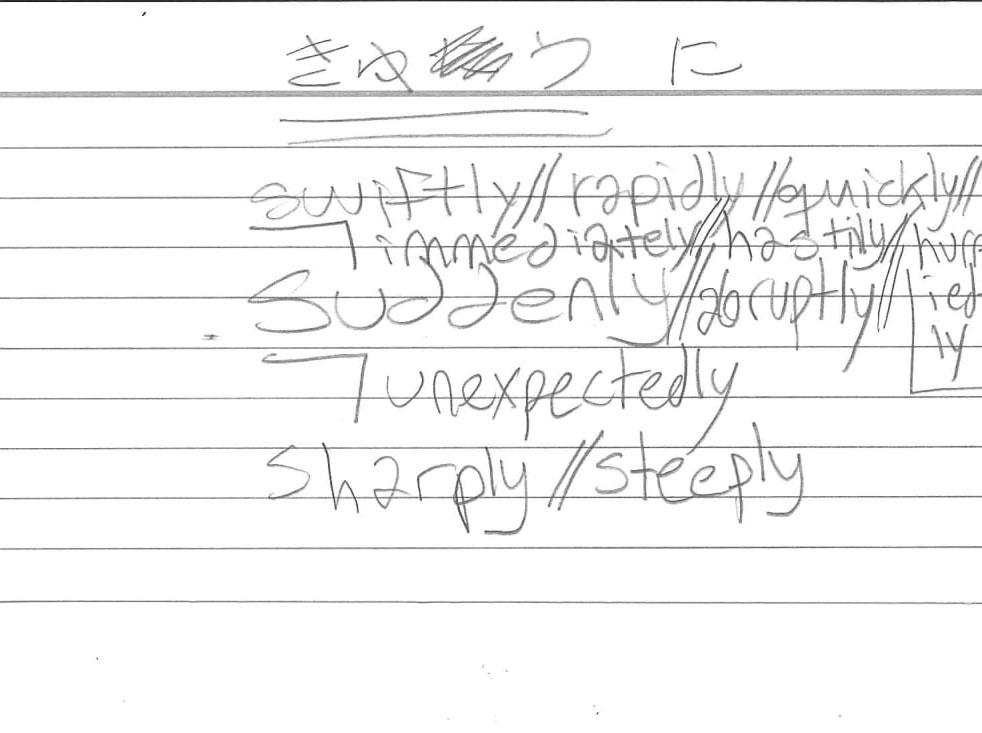 きゅう に
swiftly//rapidly//quickly//
immediately//hastily//hurr
suddenly//abruptly//ied
ly
unexpectedly
sharply//steeply